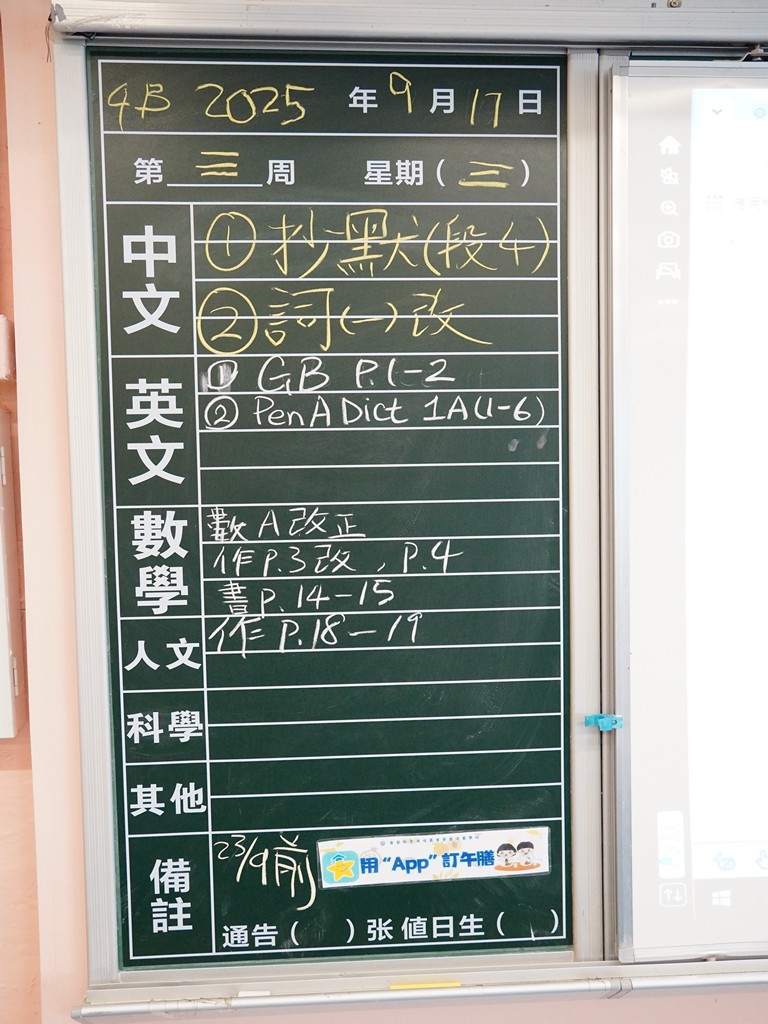 4B 2025 年 9 月 17 日
第 三 周 星期 ( 三 )
中文
① 抄默(段4)
② 詞(一)改
英文
① GB P.1-2
② Pen A Dict 1A(1-6)
數學
數A改正
作P.3改, P.4
書P.14-15
人文
作 P.18-19
科學
其他
備註
23/9前
用"App"訂午膳
通告 ( ) 张 値日生 ( )